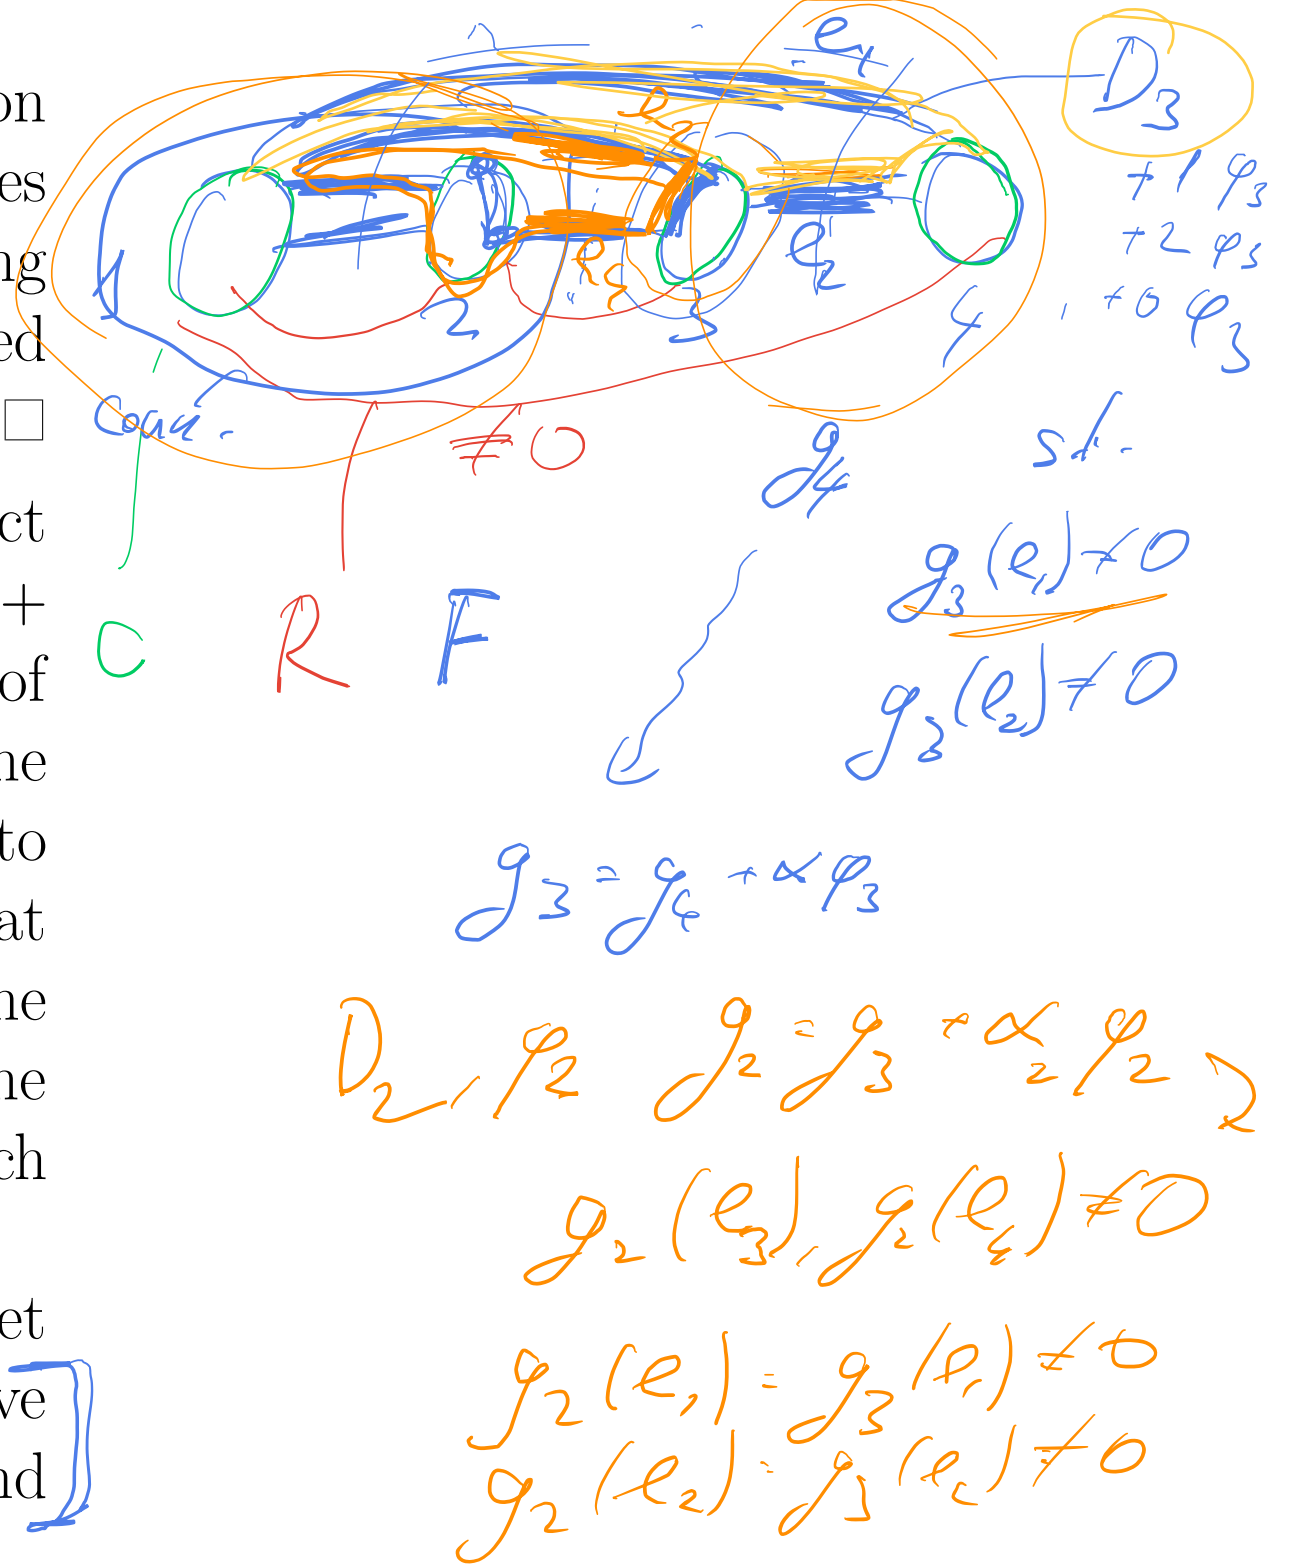 on
es
ng
ed
□
ct
+
of
ne
to
at
ne
ne
ch
et
ve
nd
e₁
D₃
e₃
+1 φ₃
+2 φ₃
+0 φ₃
e₂
1
2
3
4
≠0
g₄
st.
g₃(e₁)≠0
C R F
g₃(e₂)≠0
g₃ = g₄ + αφ₃
D₂, φ₂ g₂ = g₃ + α₂φ₂
g₂(e₃), g₂(e₄)≠0
g₂(e₁) = g₃(e₁)≠0
g₂(e₂) = g₃(e₂)≠0